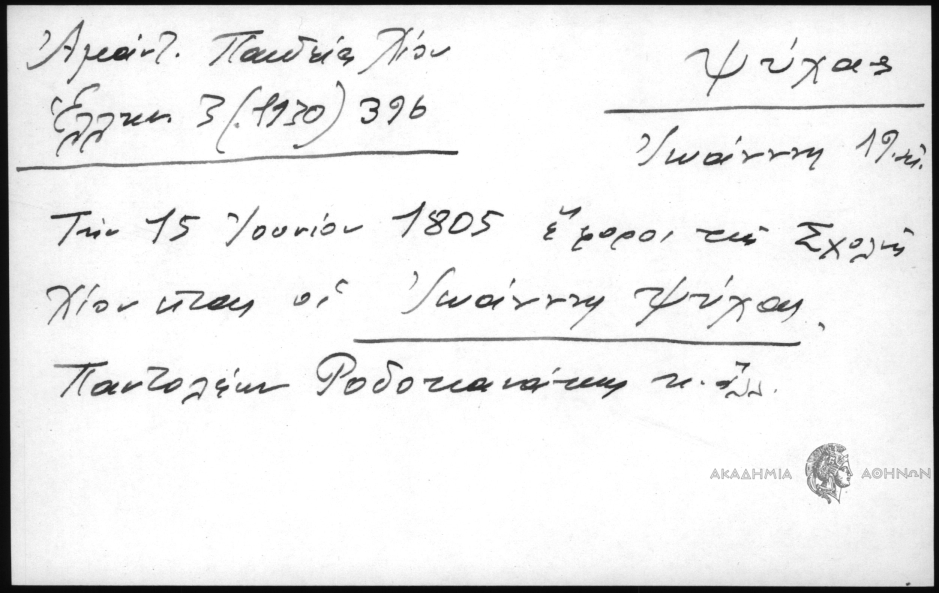 Ἀμάντ. Παιδεία Χίου
Ἑλλην. 3 (1930) 396
Ψύχας
Ἰωάννης 19. αἰ.
Τὴν 15 Ἰουνίου 1805 ἔφοροι τῆς Σχολῆς
Χίου ἦσαν οἱ Ἰωάννης Ψύχας,
Παντολέων Ροδοκανάκης κ. ἄλλ.
ΑΚΑΔΗΜΙΑ ΑΘΗΝΩΝ